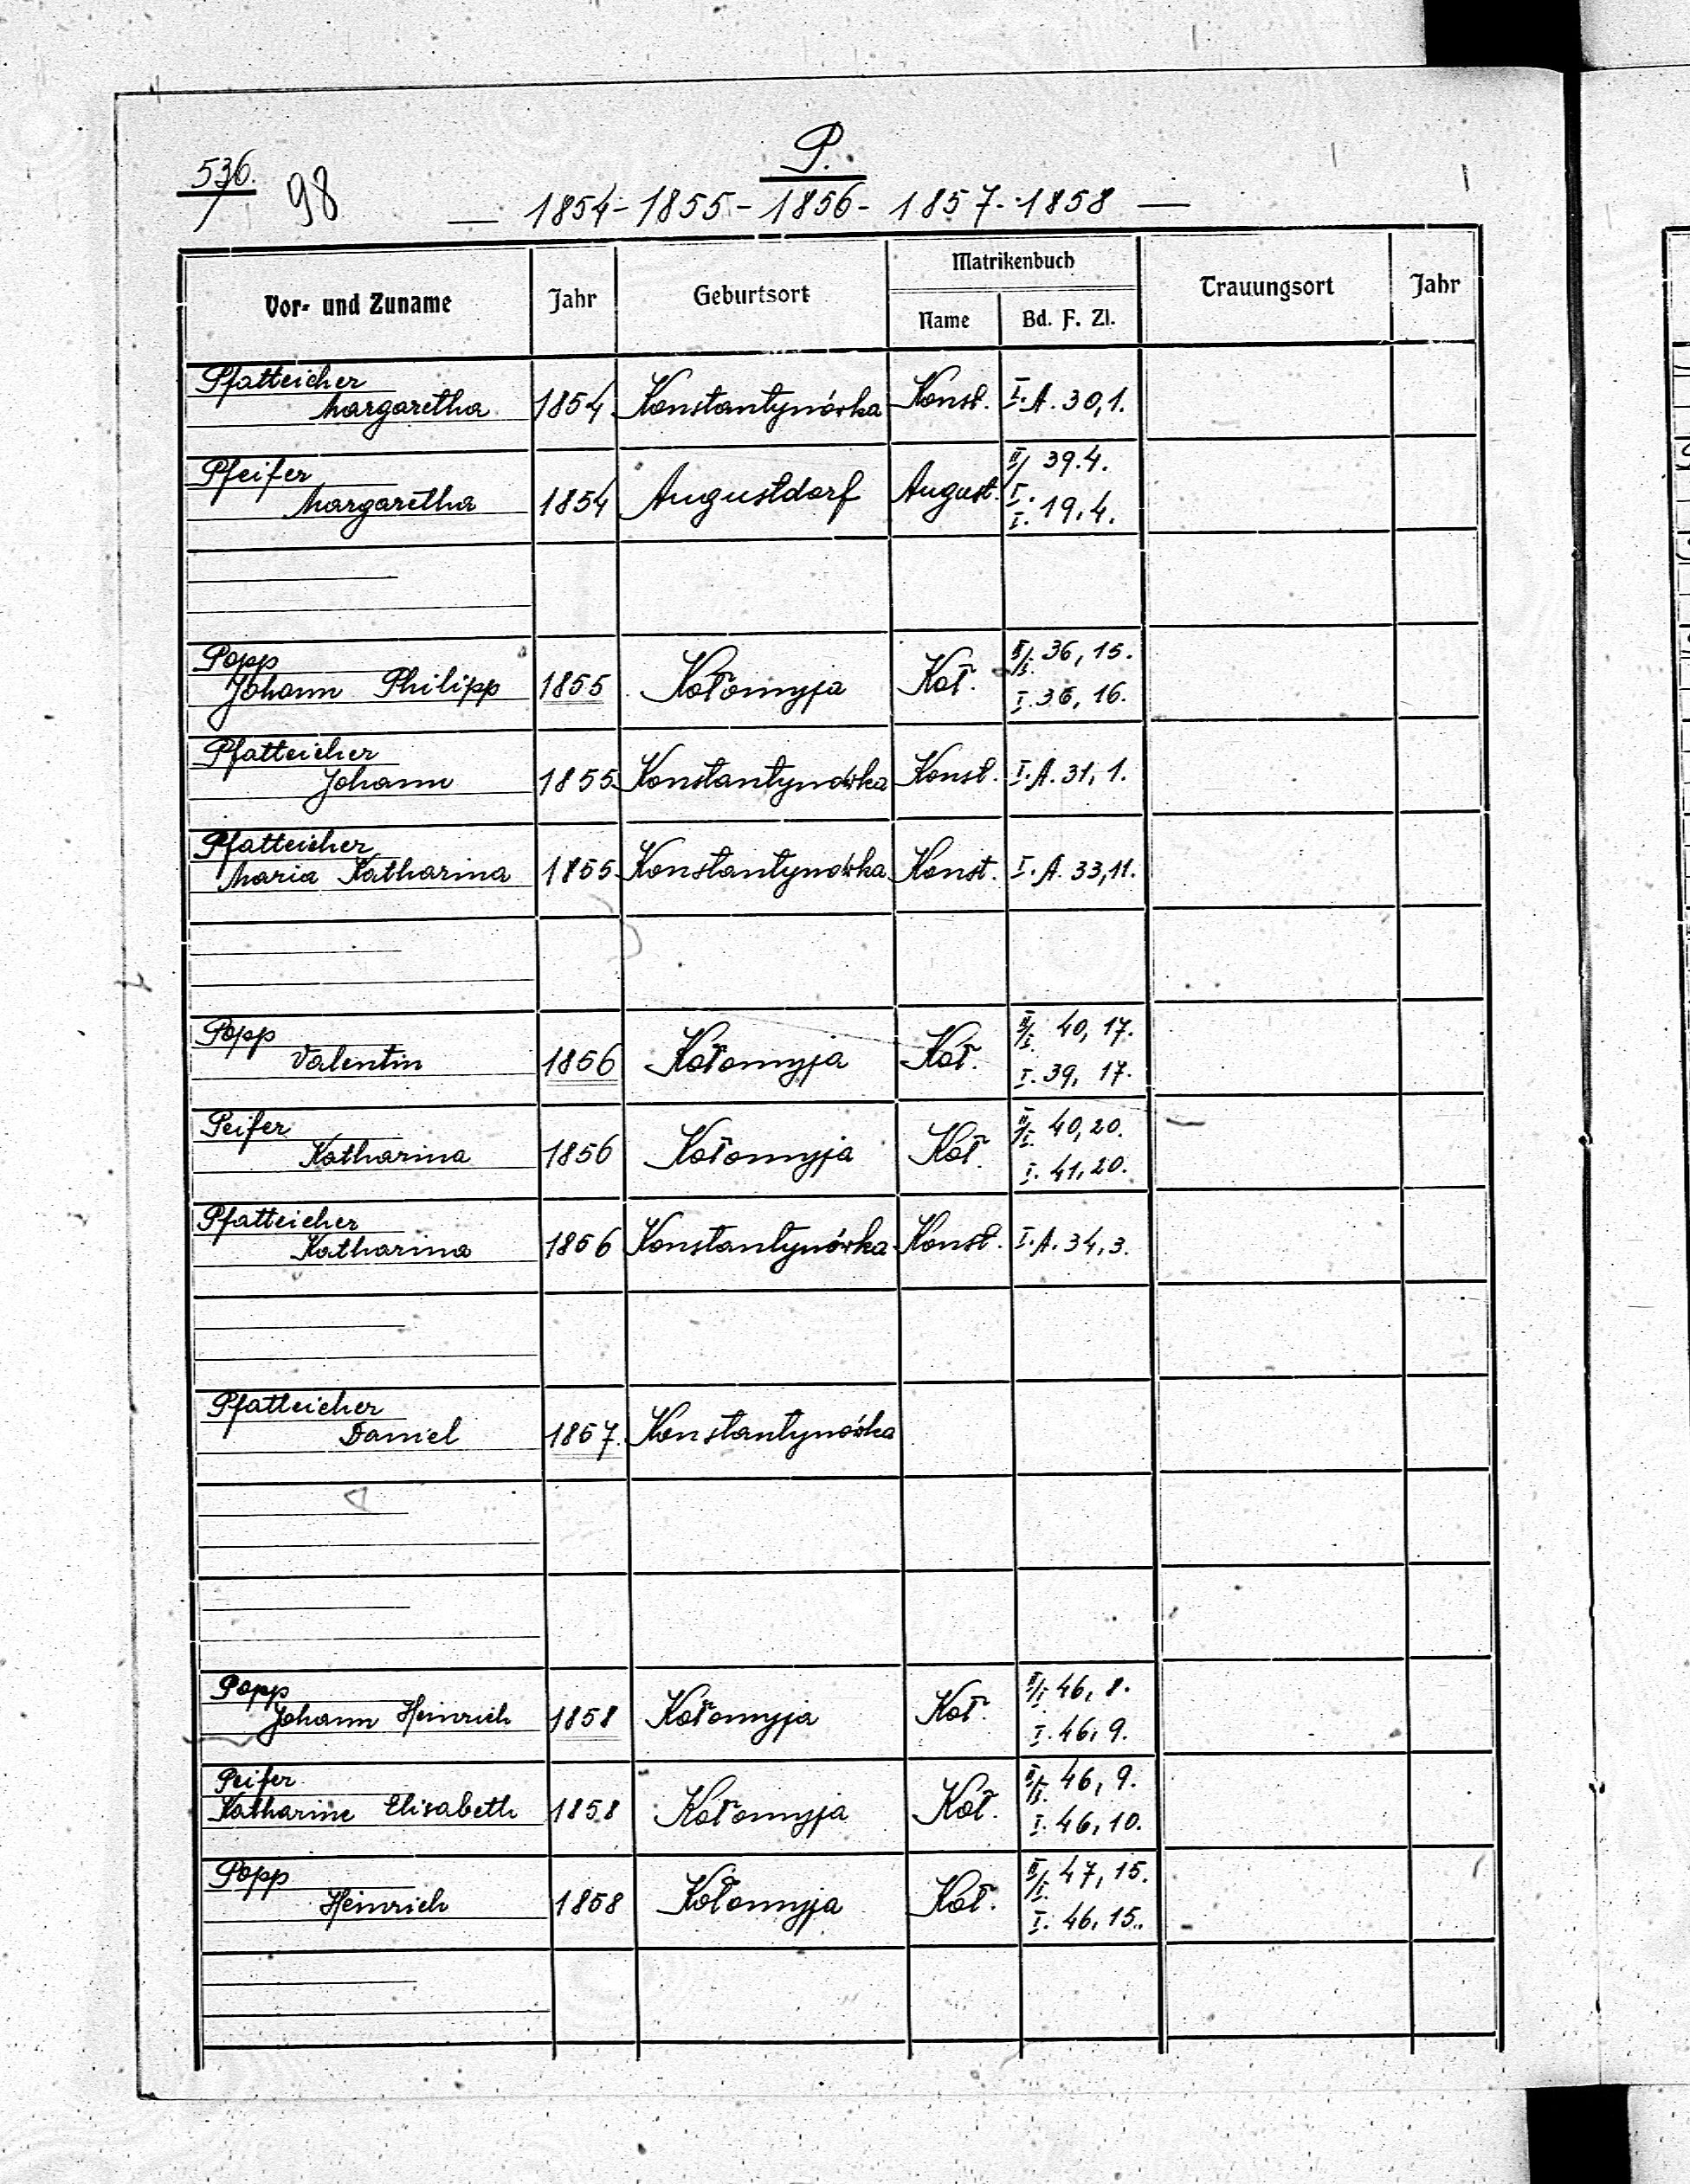 P.
536.
98
— 1854-1855-1856-1857-1858 —
Vor- und Zuname Jahr Geburtsort Matrikenbuch Trauungsort Jahr
Name Bd. F. Zl.
Pfatteicher
Margaretha 1854 Konstantynówka Konst. I.A. 30,1.
Pfeifer II/I 39.4.
Margaretha 1854 Augustdorf August. I. 19,4.
Popp II/I. 36, 15.
Johann Philipp 1855 Kołomyja Koł. I. 36, 16.
Pfatteicher
Johann 1855 Konstantynówka Konst. I.A. 31, 1.
Pfatteicher
Maria Katharina 1855 Konstantynówka Konst. I.A. 33,11.
Popp II/I. 40, 17.
Valentin 1856 Kołomyja Koł. I. 39, 17.
Peifer II/I. 40,20.
Katharina 1856 Kołomyja Koł. I. 41,20.
Pfatteicher
Katharina 1856 Konstantynówka Konst. I.A. 34,3.
Pfatteicher
Daniel 1857. Konstantynówka
Popp II/I. 46, 8.
Johann Heinrich 1858 Kołomyja Koł. I. 46, 9.
Peifer II/I. 46, 9.
Katharine Elisabeth 1858 Kołomyja Koł. I. 46, 10.
Popp II/I. 47, 15.
Heinrich 1858 Kołomyja Koł. I. 46, 15.